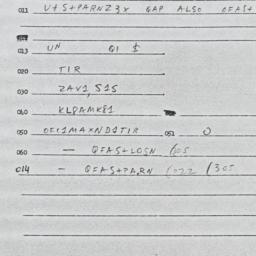 011 V+S+PARNZ3X GAP ALSO OFAS+
013 UN QI $
020 TIR
030 ZAV1,S1S
040 KLPAMK81
050 OFC1MAXND1TIR 051 O
060 — QFAS+LOSN 605
014 - QFAS+PARN 1022 / 305